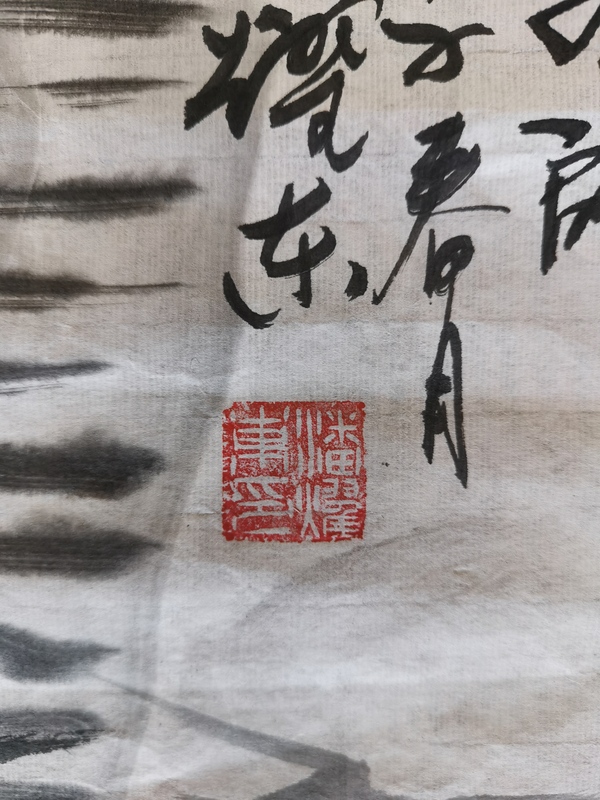 子春月
耀东
潘耀
东印